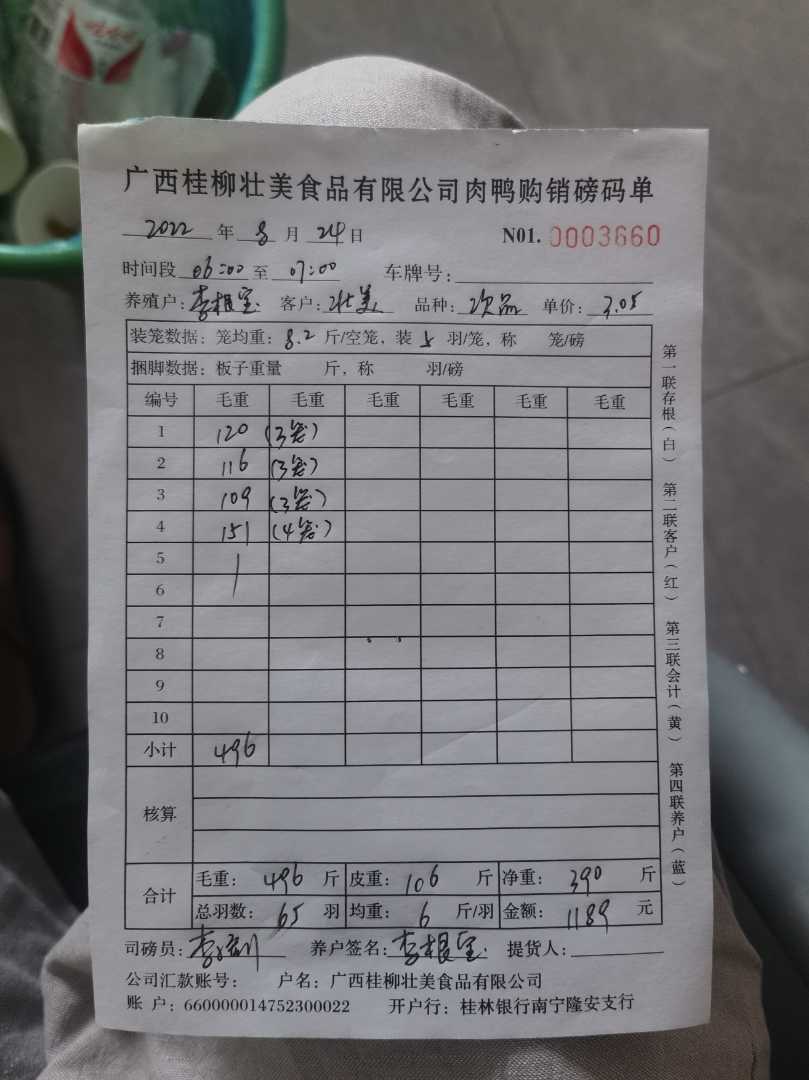 广西桂柳壮美食品有限公司肉鸭购销磅码单
2022 年 8 月 24 日 N01. 0003660
时间段 06:00 至 07:00 车牌号:
养殖户: 李根宝 客户: 壮美 品种: 次品 单价: 3.05
装笼数据: 笼均重: 8.2 斤/空笼, 装 5 羽/笼, 称 笼/磅
捆脚数据: 板子重量 斤, 称 羽/磅
编号 毛重 毛重 毛重 毛重 毛重 毛重
1 120 (3笼)
2 116 (3笼)
3 109 (3笼)
4 151 (4笼)
5
6
7
8
9
10
小计 496
核算
合计 毛重: 496 斤 皮重: 106 斤 净重: 390 斤
总羽数: 65 羽 均重: 6 斤/羽 金额: 1189 元
司磅员: 李 养户签名: 李根宝 提货人:
公司汇款账号: 户名: 广西桂柳壮美食品有限公司
账 户: 660000014752300022 开户行: 桂林银行南宁隆安支行
第一联存根(白) 第二联客户(红) 第三联会计(黄) 第四联养户(蓝)